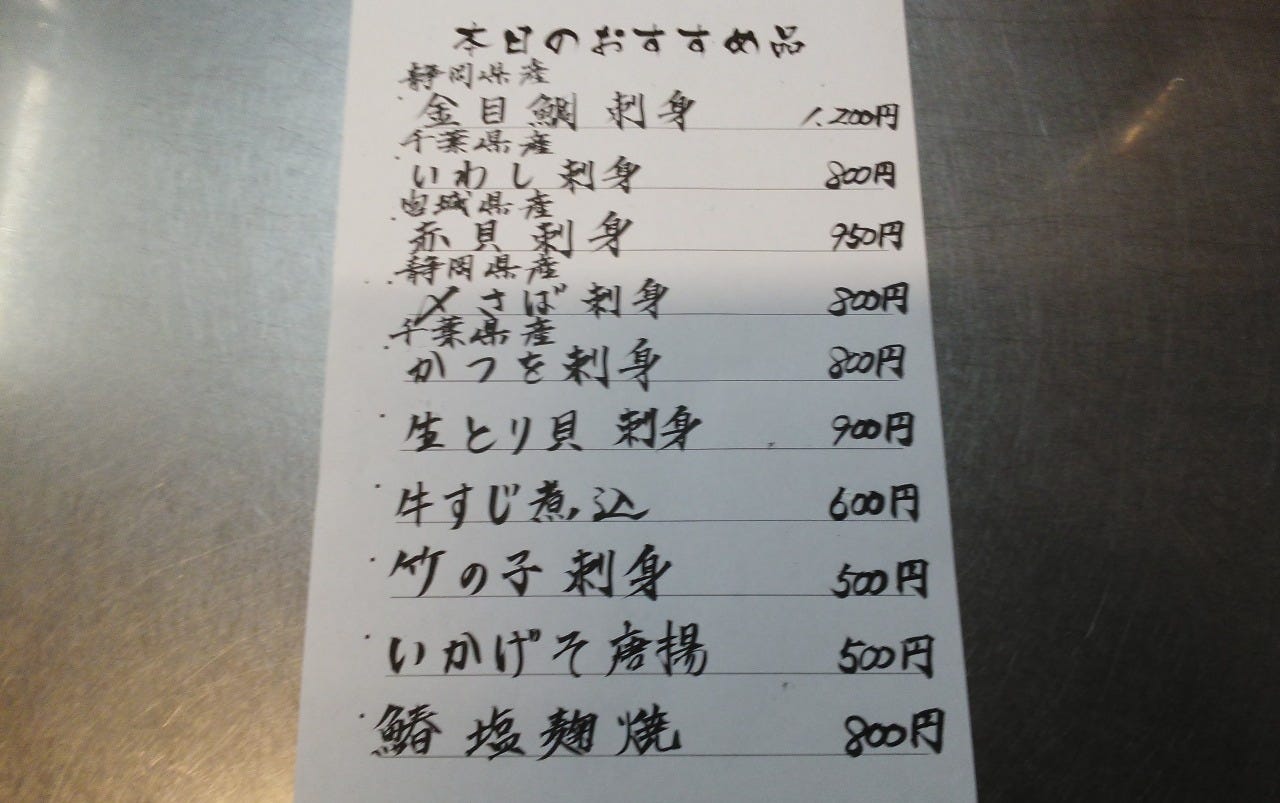 本日のおすすめ品
静岡県産
・金目鯛 刺身 1.200円
千葉県産
・いわし刺身 800円
宮城県産
・赤貝刺身 950円
静岡県産
・〆さば刺身 800円
千葉県産
・かつを刺身 800円
・生とり貝 刺身 900円
・牛すじ煮込 600円
・竹の子刺身 500円
・いかげそ唐揚 500円
・鰆塩麹焼 800円